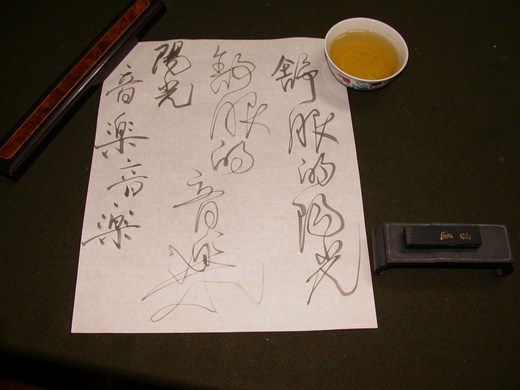 舒服的陽光
舒服的
音樂
陽光
音楽音楽